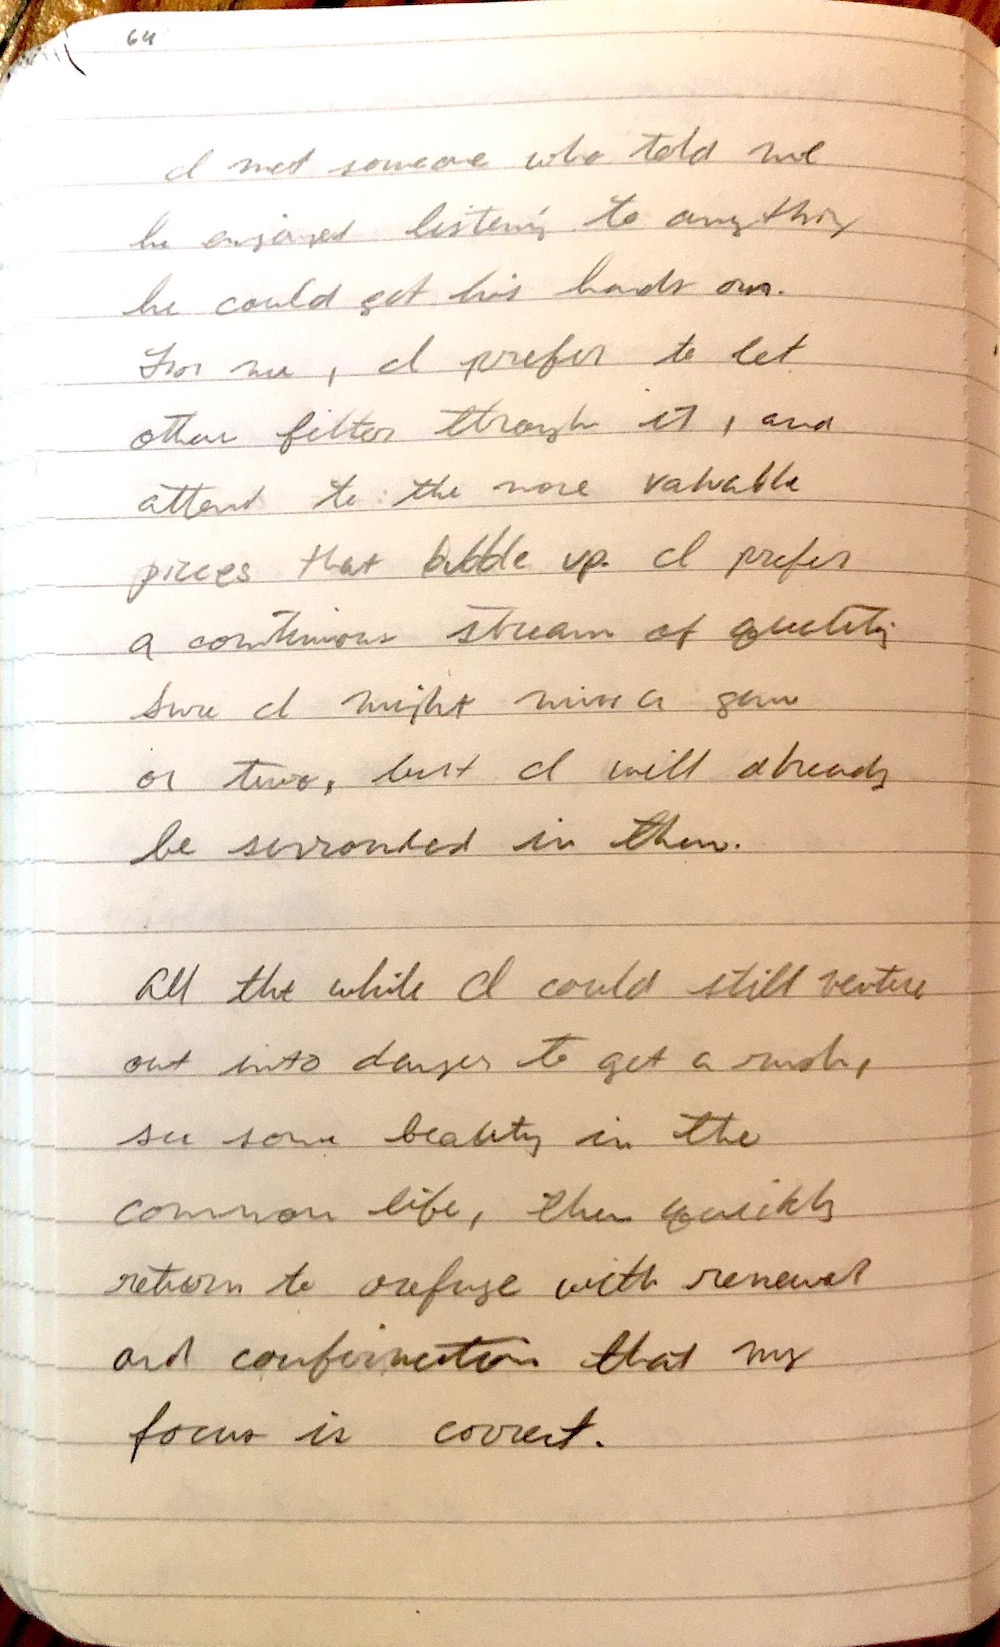 64
I met someone who told me
he enjoyed listening to anything
he could get his hands on.
For me, I prefer to let
other filter through it, and
attend to the more valuable
pieces that bubble up. I prefer
a continuous stream of quality
Sure I might miss a gem
or two, but I will already
be surrounded in them.
All the while I could still venture
out into danger to get a rush,
see some beauty in the
common life, then quickly
return to refuge with renewal
and confirmation that my
focus is correct.